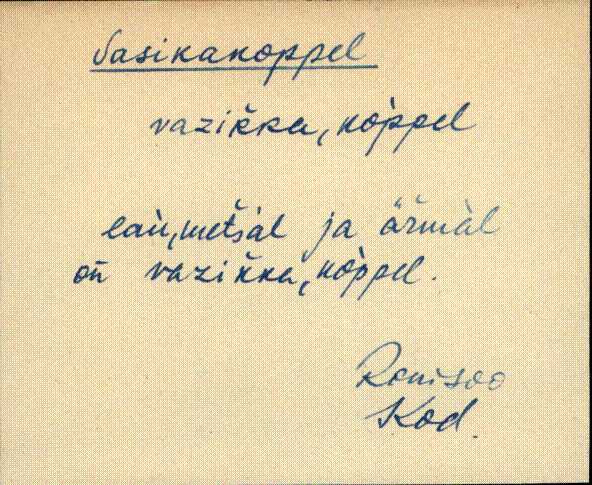 Vasikakoppel
vazikka, kòppel
laiù, metśàl ja äřmàl
oñ vazikka, kòppel.
Ronisoo
Kod.